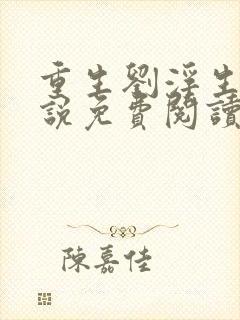 重生劉淫生
說免費閱讀
陳嘉佳